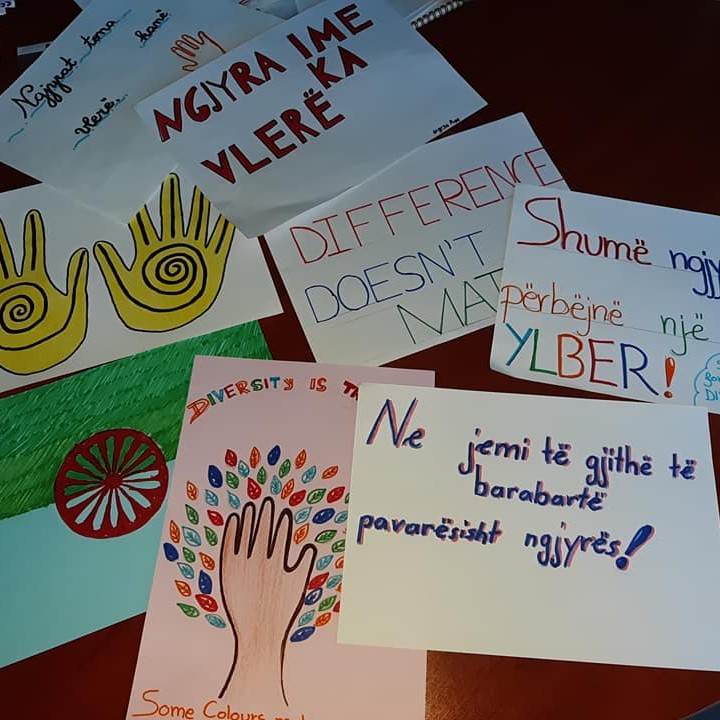 Ngjyrat tona kanë
vlerë.
NGJYRA IME
KA
VLERË
DIFFERENCE
DOESN'T
MAT
Shumë ngjy
përbëjnë një
YLBER!
DIVERSITY IS
Ne jemi të gjithë të
barabartë
pavarësisht ngjyrës!
Some Colours